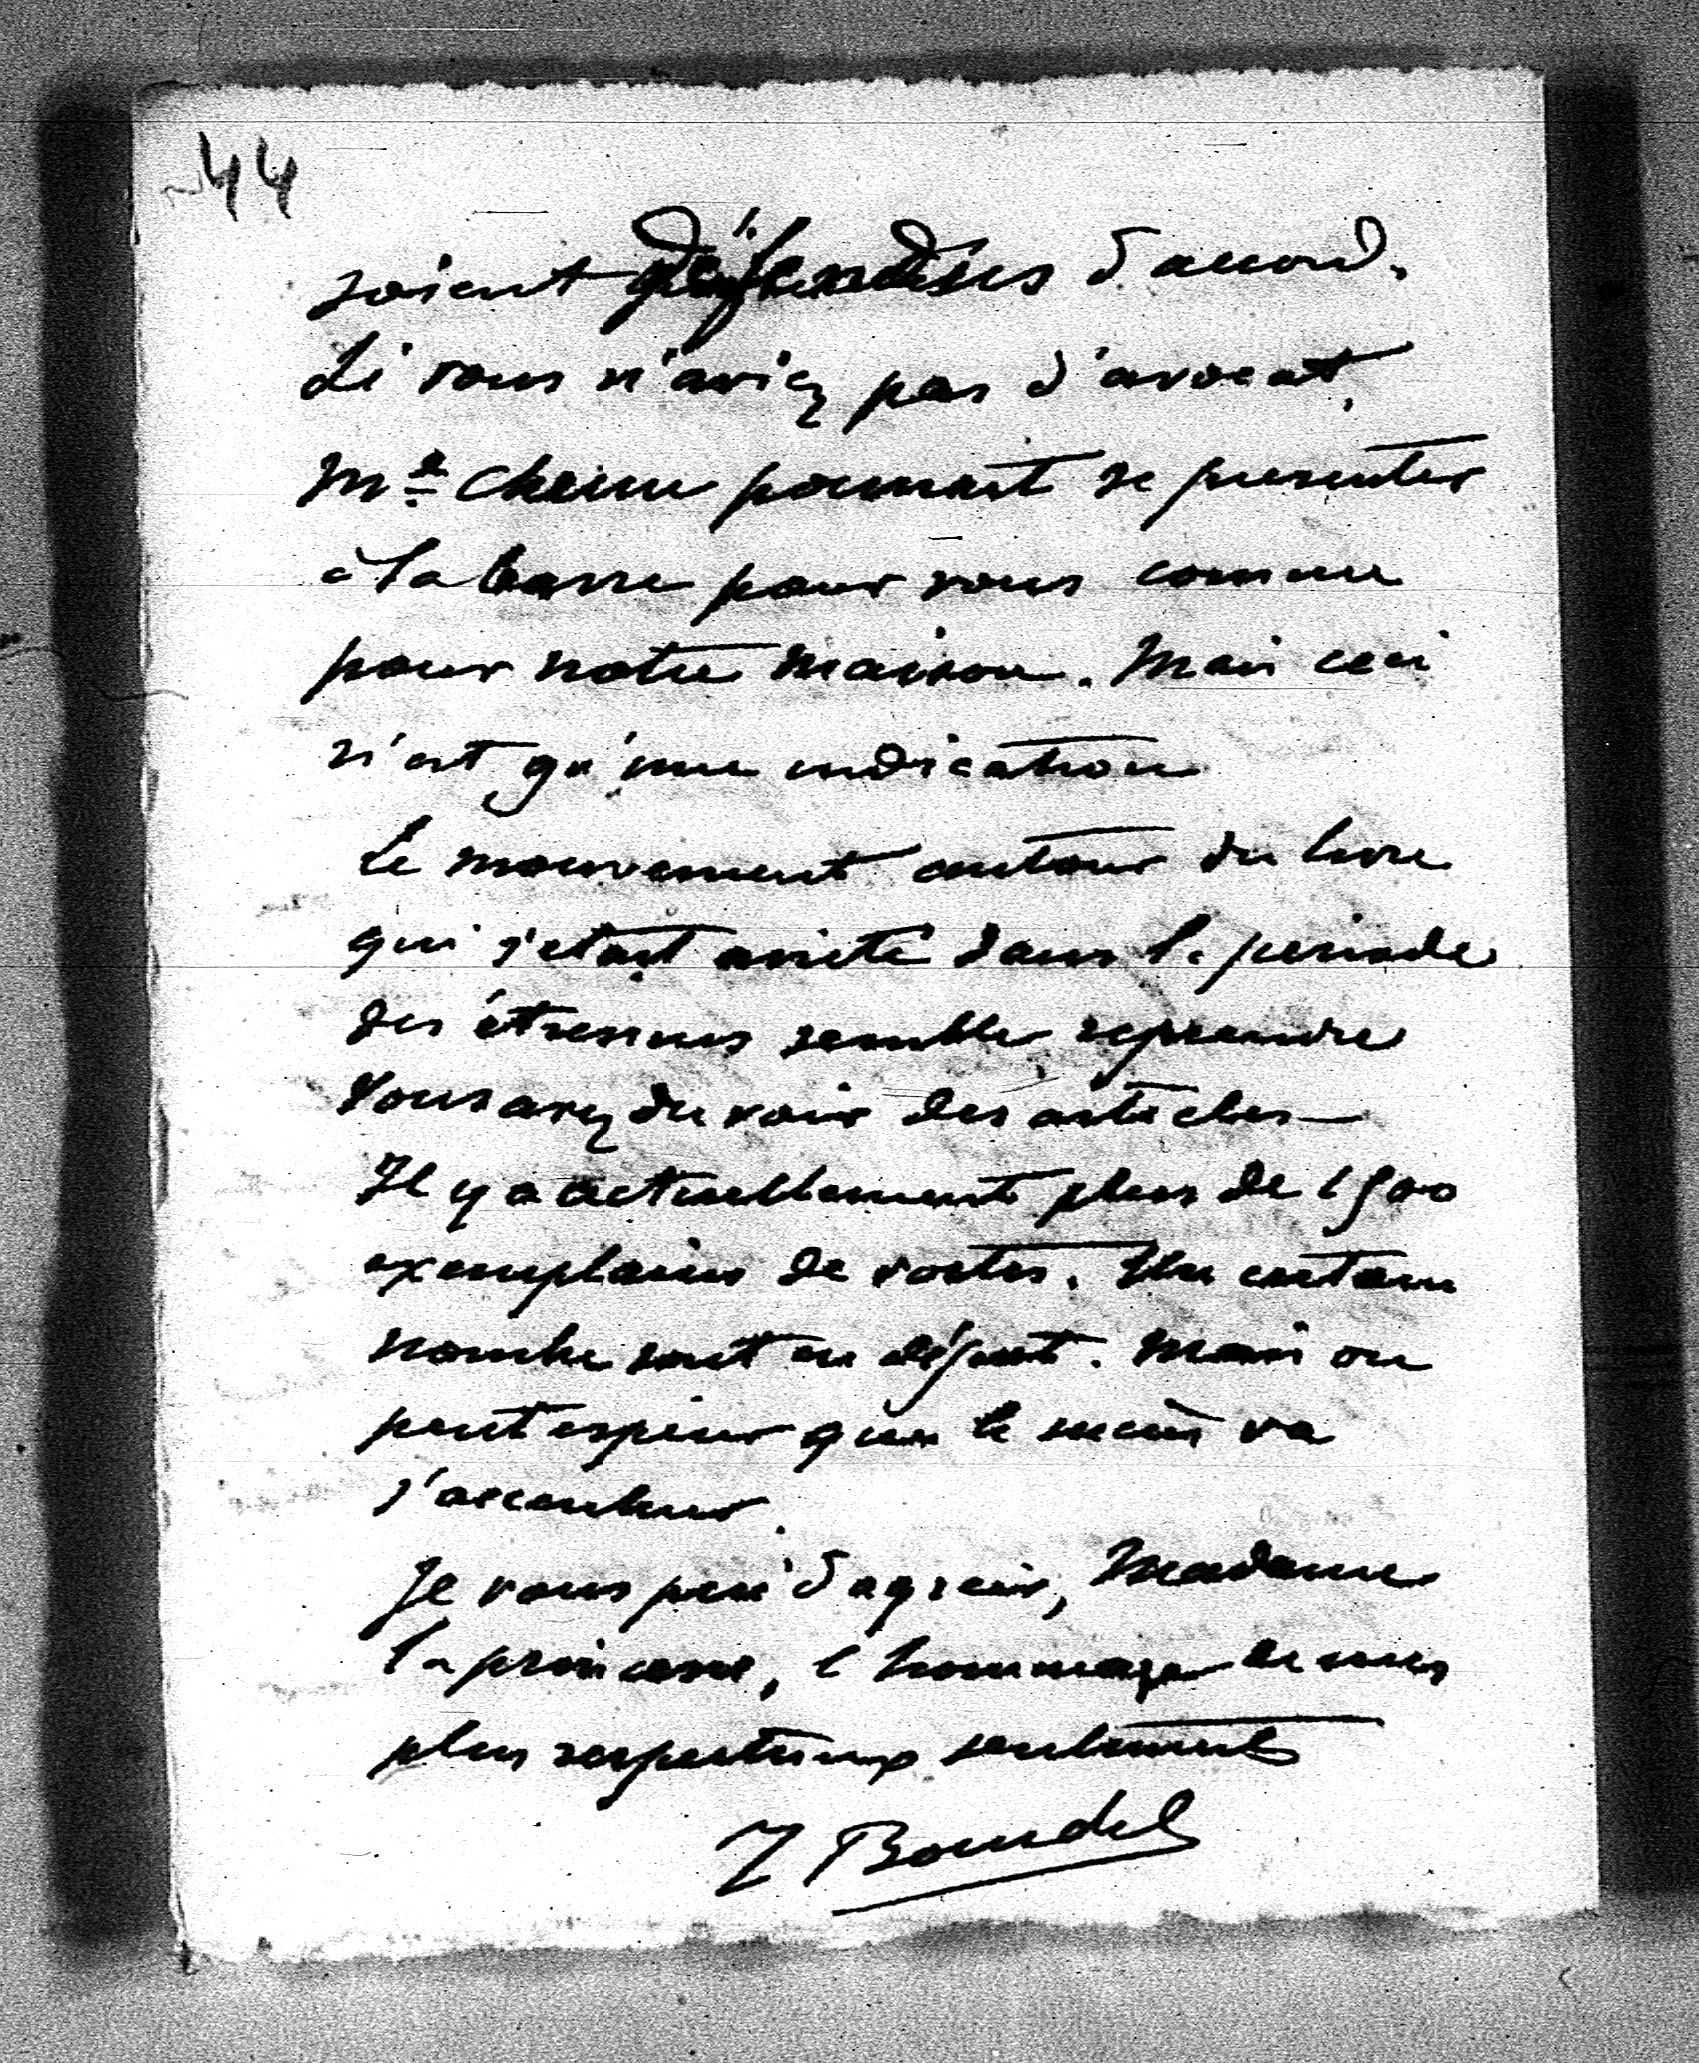 44
soient défendus d'accord.
Si vous n'aviez pas d'avocat,
Me Cheime pourrait se presenter
à la barre pour vous comme
pour notre maison. Mais ceci
n'est qu'une indication
Le mouvement autour du livre
qui s'etait arreté dans la periode
des étrennes semble reprendre
Vous avez du voir des articles —
Il y a actuellement plus de 1500
exemplaires de sortis. Un certain
nombre sont en dépot. Mais on
peut esperer que le succès va
s'accentuer.
Je vous prie d'agreer, Madame
la princesse, l'hommage de mes
plus respectueux sentiments
J Bourdel